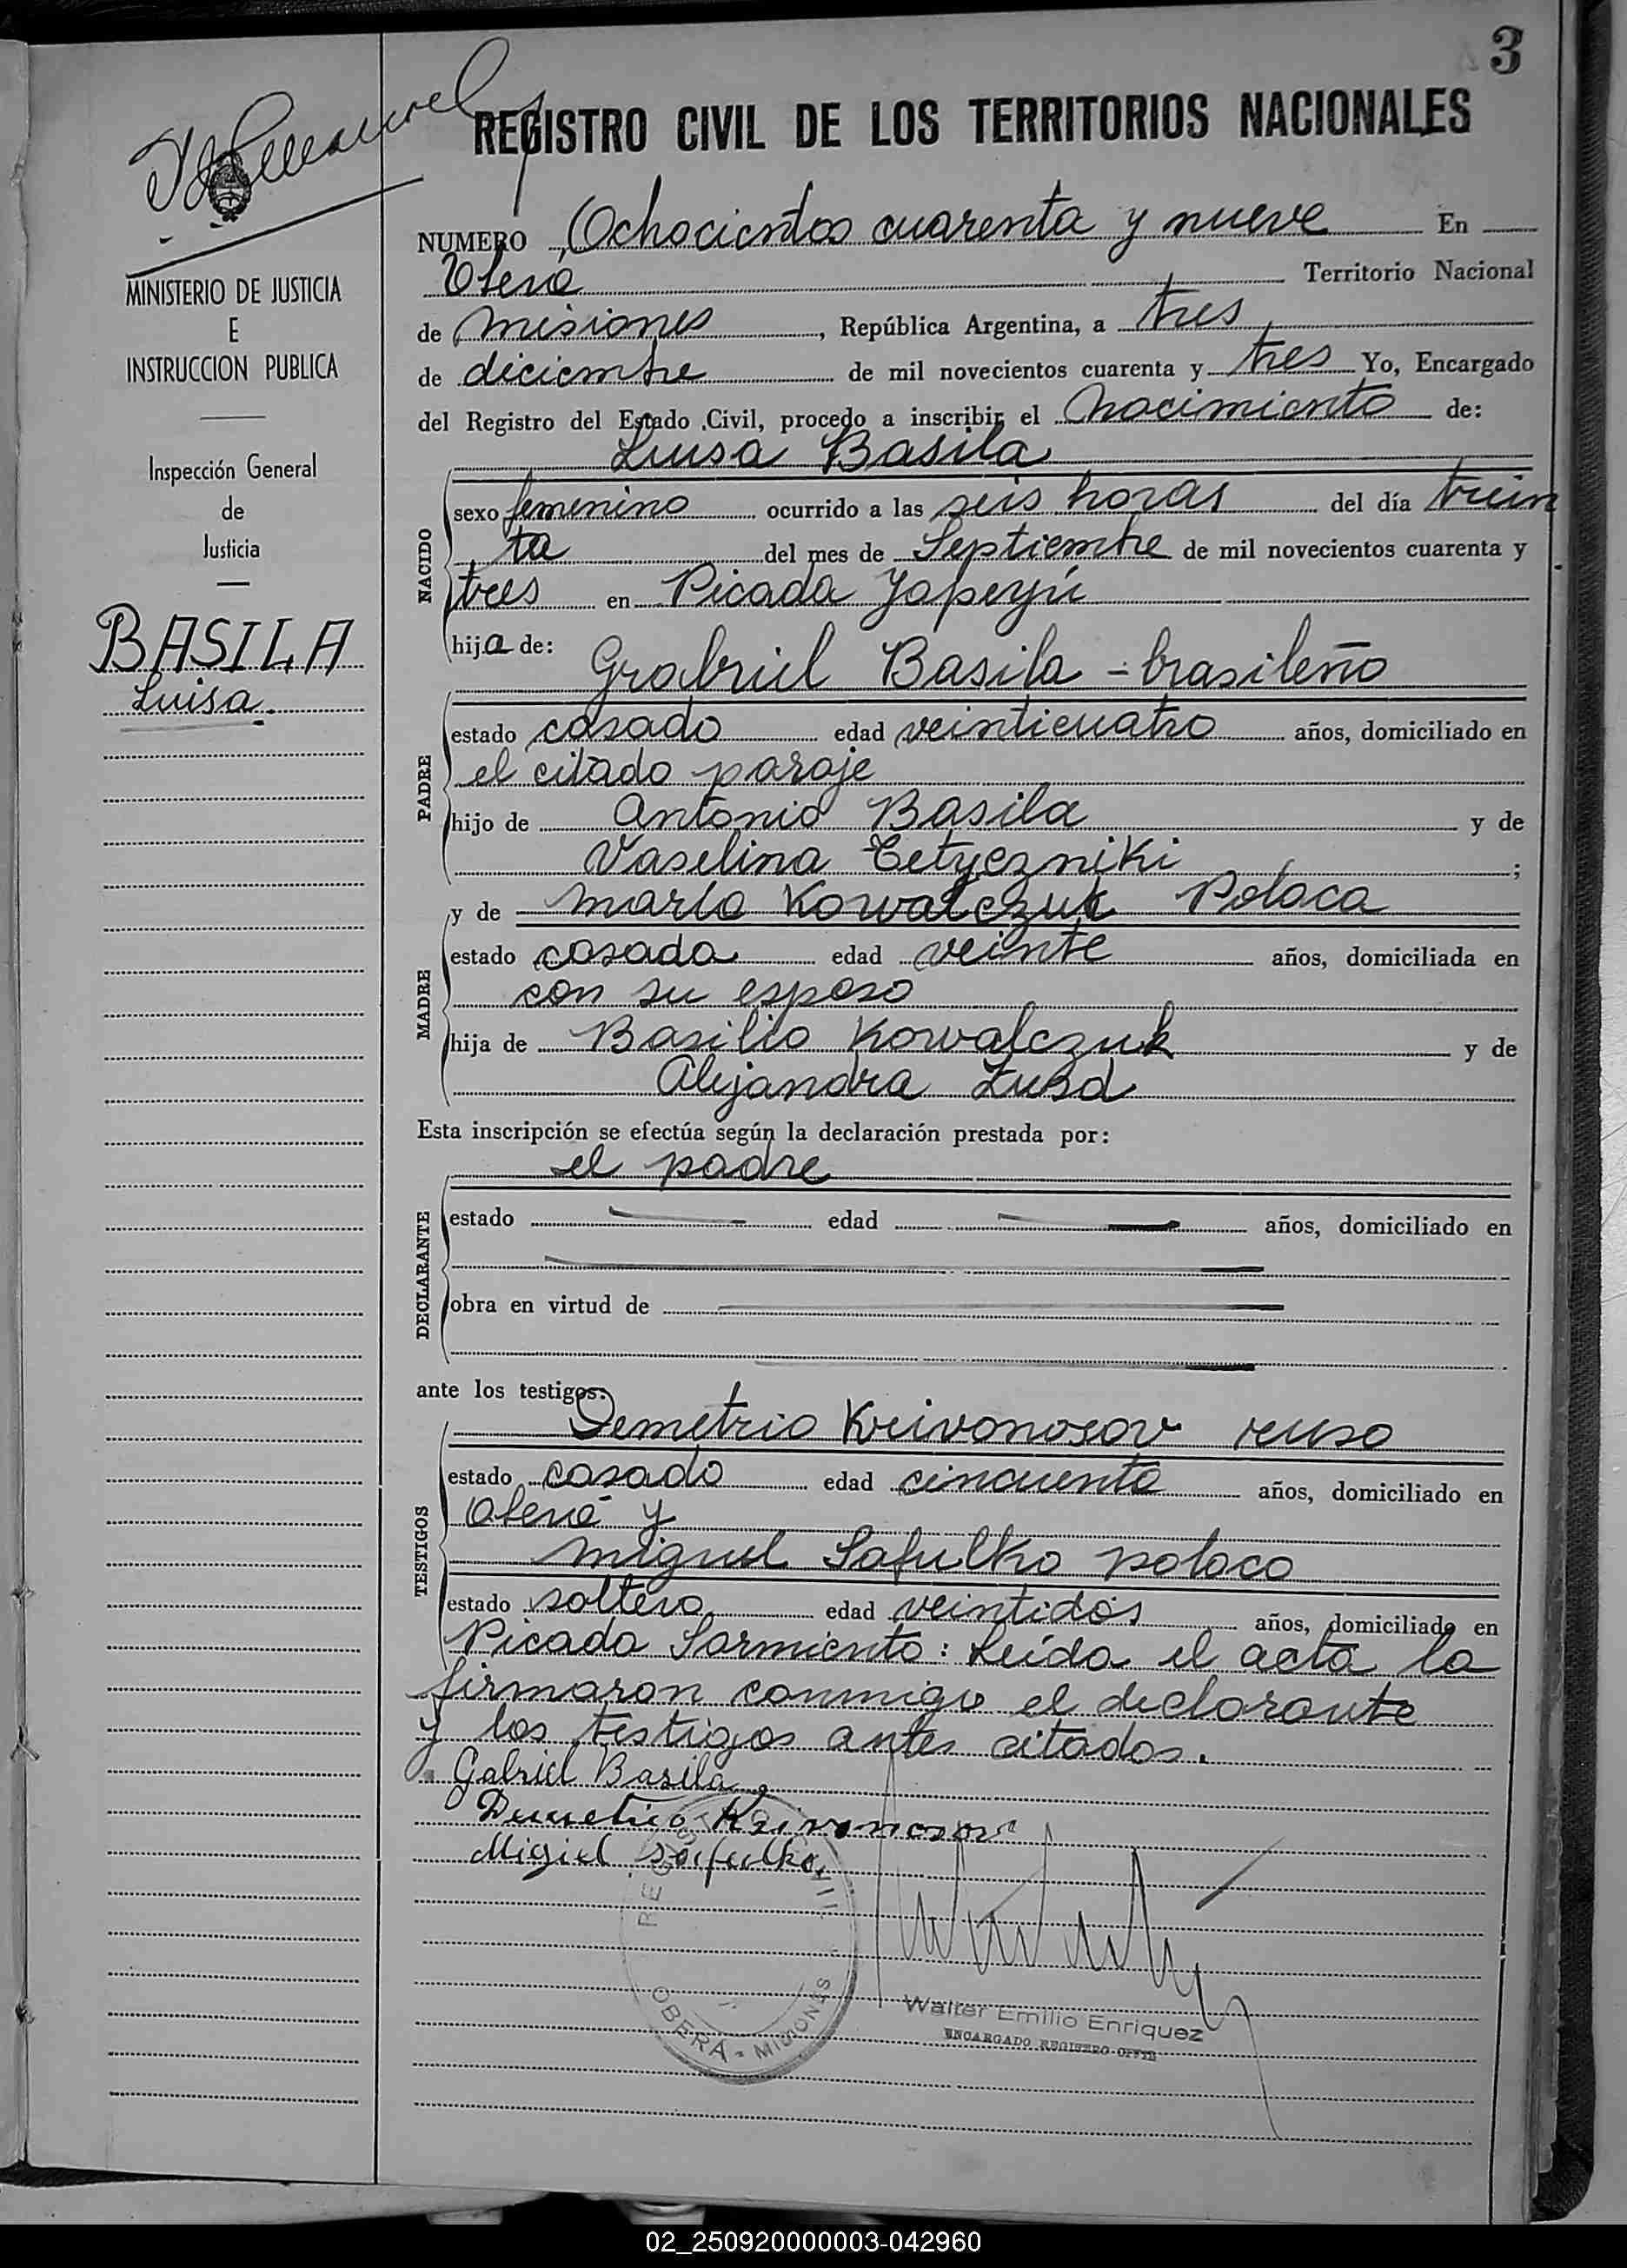 3
REGISTRO CIVIL DE LOS TERRITORIOS NACIONALES
MINISTERIO DE JUSTICIA
E
INSTRUCCION PUBLICA
Inspección General
de
Justicia
BASILA
Luisa.
NUMERO Ochocientos cuarenta y nueve En
Oberá Territorio Nacional
de misiones, República Argentina, a tres
de diciembre de mil novecientos cuarenta y tres Yo, Encargado
del Registro del Estado Civil, procedo a inscribir el Nacimiento de:
Luisa Basila
NACIDO
sexo femenino ocurrido a las seis horas del día trein
ta del mes de Septiembre de mil novecientos cuarenta y
tres en Picada Yapeyú
hija de:
Grabriel Basila - brasileño
PADRE
estado casado edad veinticuatro años, domiciliado en
el citado paraje
hijo de Antonio Basila y de
Vaselina Tetyczniki ;
y de María Kowalczuk Polaca
MADRE
estado casada edad veinte años, domiciliada en
con su esposo
hija de Basilio Kowalczuk y de
Alejandra
Esta inscripción se efectúa según la declaración prestada por:
el padre
DECLARANTE
estado edad años, domiciliado en
obra en virtud de
ante los testigos:
Demetrio Krivonosov ruso
TESTIGOS
estado casado edad cincuenta años, domiciliado en
Oberá y
Miguel Safulko polaco
estado soltero edad veintidós años, domiciliado en
Picada Sarmiento: Leída el acta la
firmaron conmigo el declarante
y los testigos antes citados.
Gabriel Basila
Demetrio Krivonosov
Migiel Safulko
REGISTRO CIVIL
OBERÁ - MISIONES
Walter Emilio Enriquez
ENCARGADO REGISTRO OFFIR
02_250920000003-042960